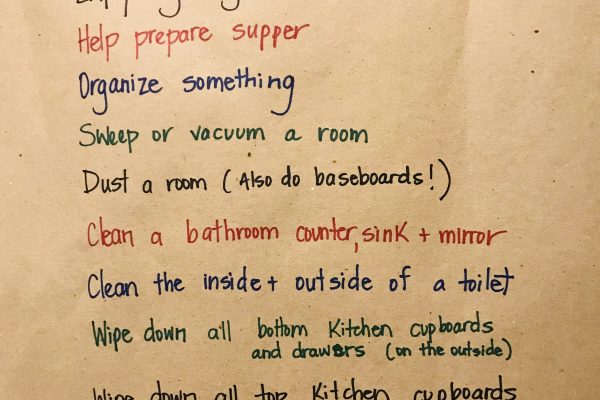 Help prepare supper
Organize something
Sweep or vacuum a room
Dust a room (Also do baseboards!)
Clean a bathroom counter, sink + mirror
Clean the inside + outside of a toilet
Wipe down all bottom Kitchen cupboards
and drawers (on the outside)
Wipe down all top Kitchen cupboards